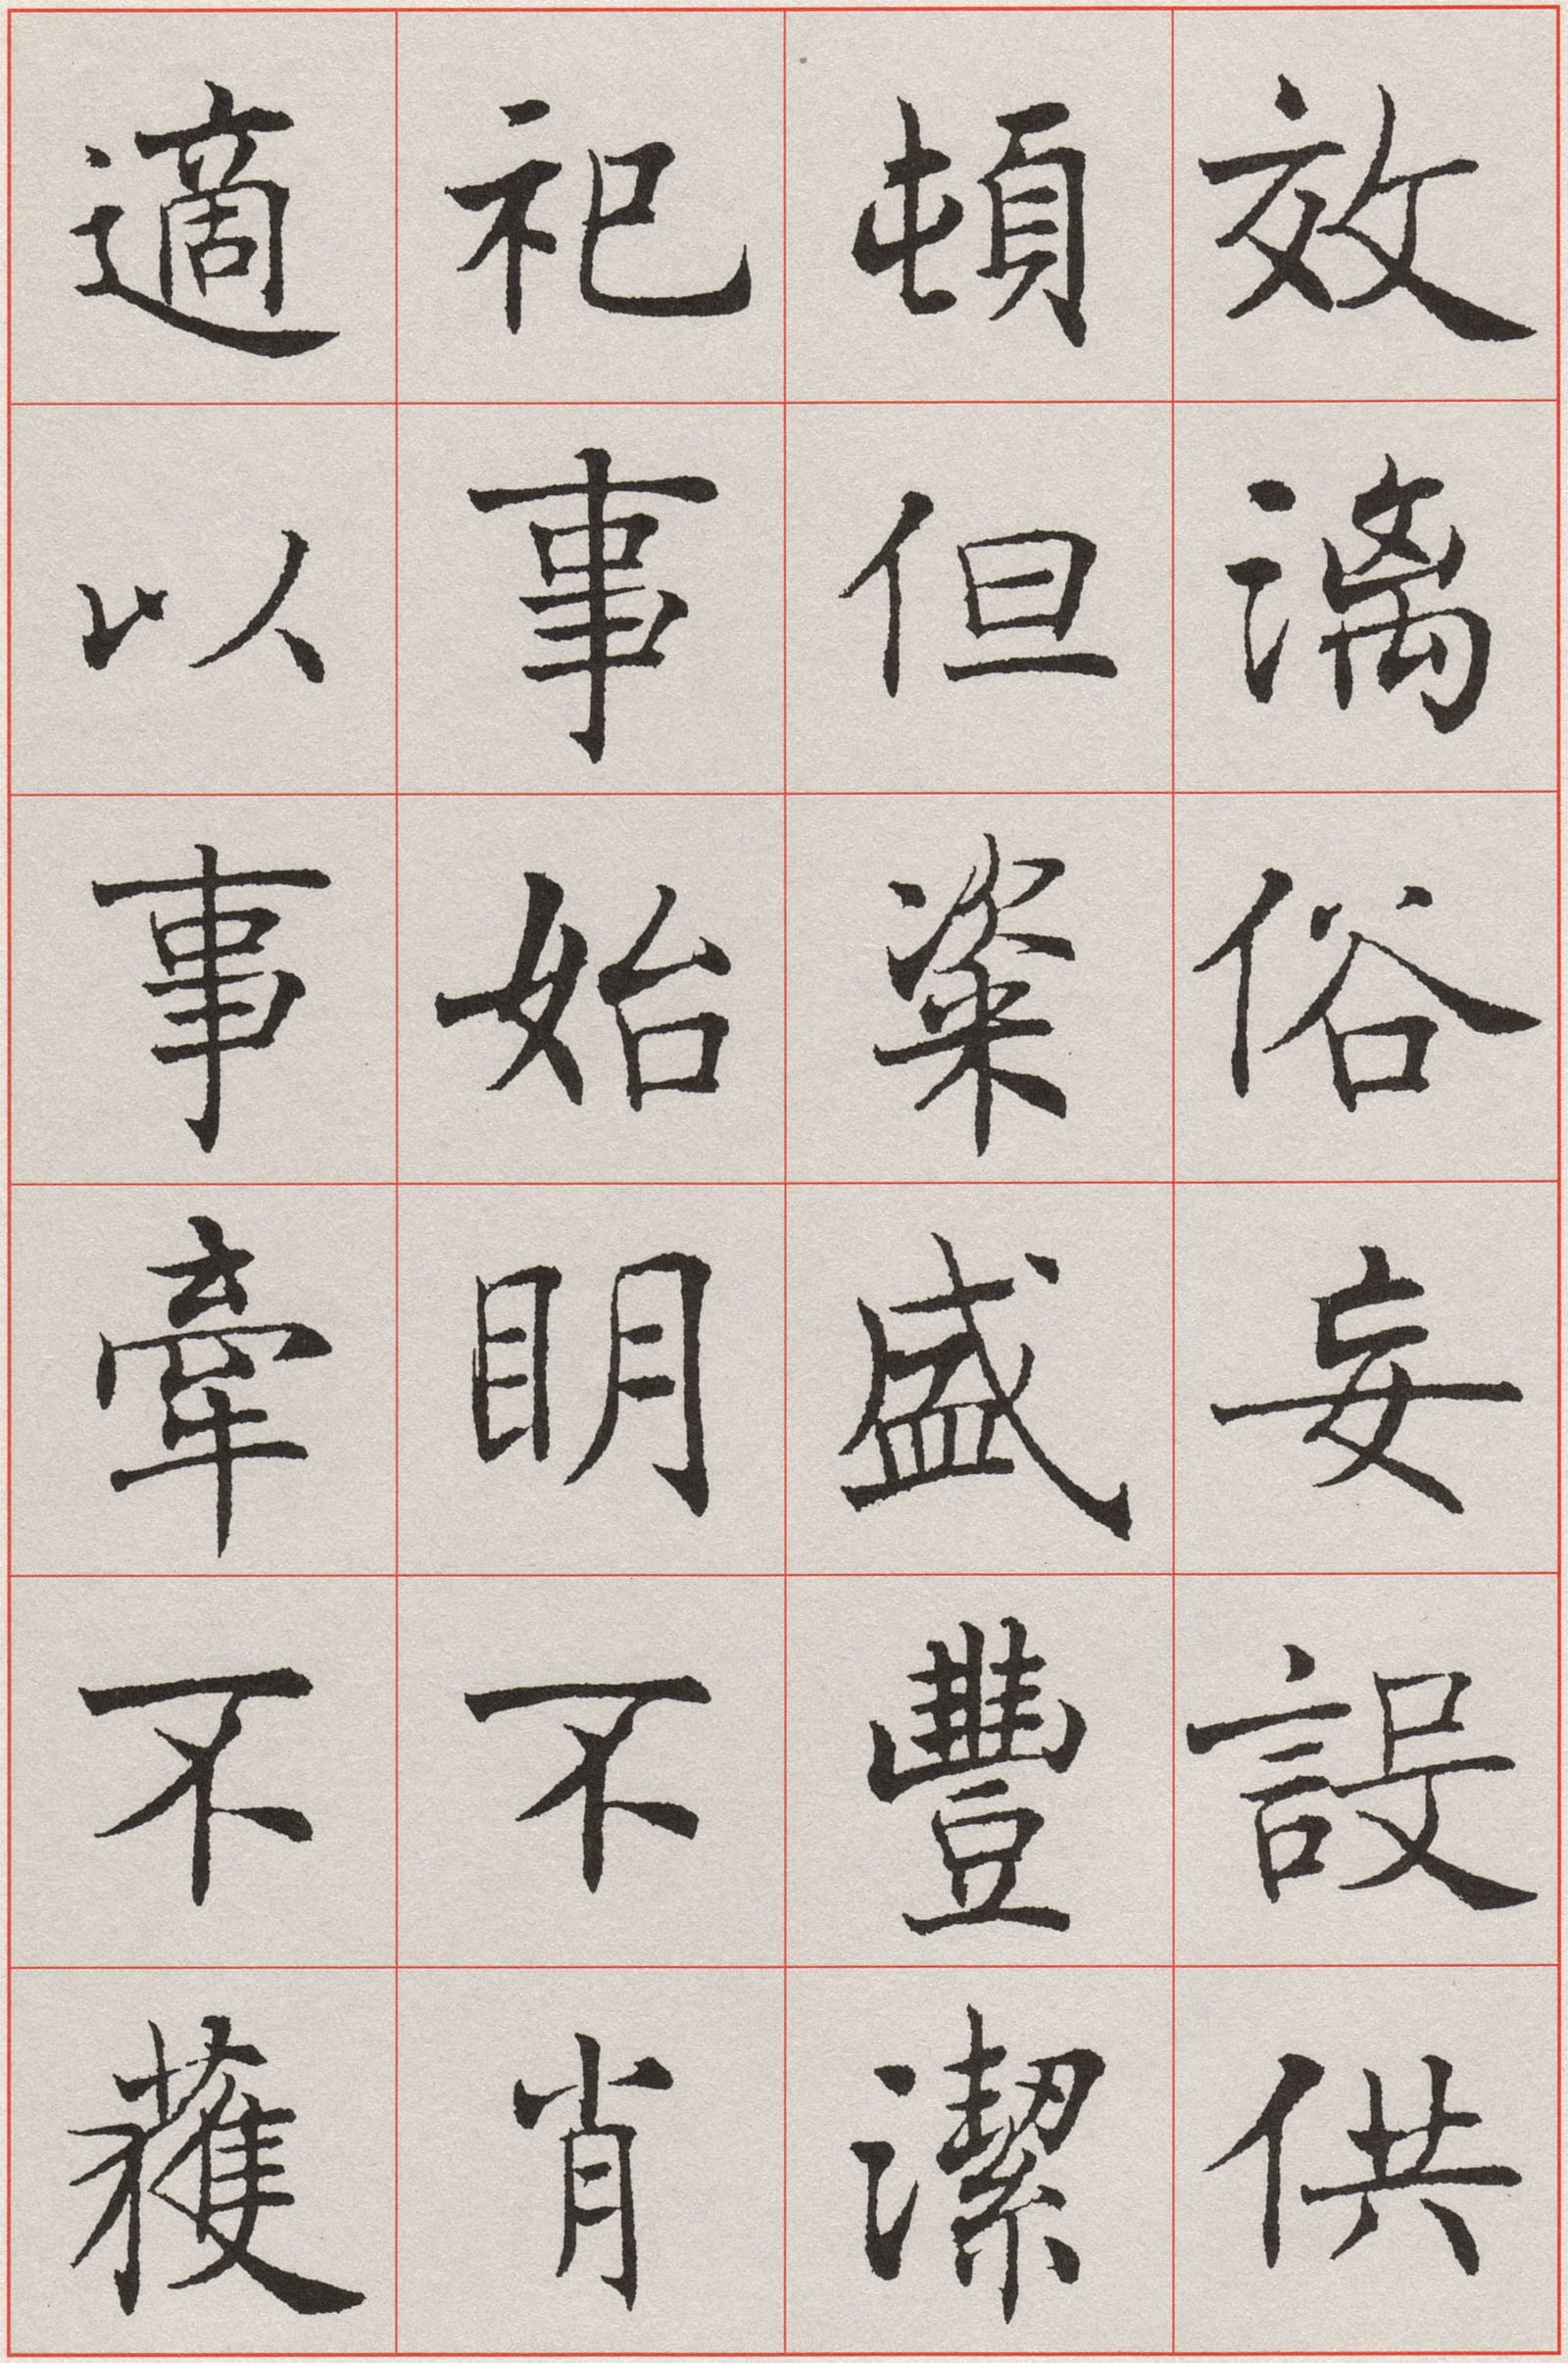 效漓俗妄設供
頓但粢盛豐潔
祀事始眀不肖
適以事牽不獲